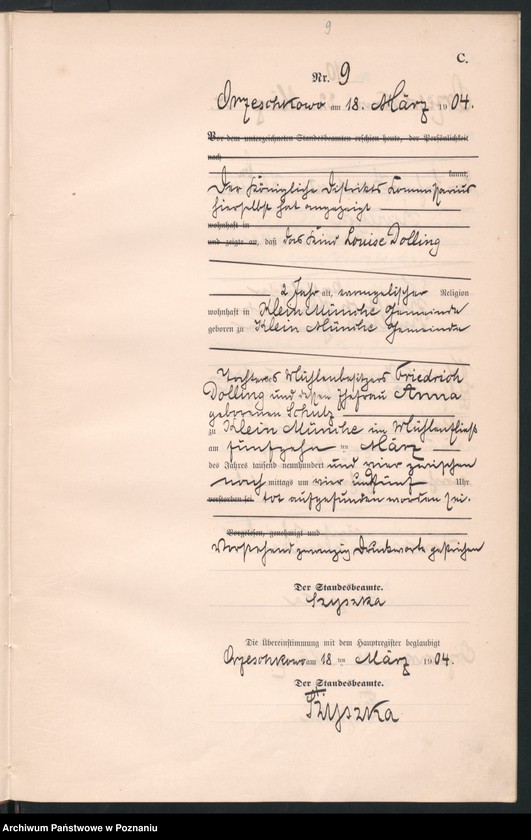 9
C.
Nr. 9
Orzeschkowo am 18. März 1904.
Vor dem unterzeichneten Standesbeamten erschien heute, der Persönlichkeit
nach
kannt,
Der Königliche Distrikts Kommissarius
hierselbst hat angezeigt
wohnhaft in
und zeigte an, daß das Kind Louise Dolling
2 Jahr alt, evangelischer Religion
wohnhaft in Klein Münche Gemeinde
geboren zu Klein Münche Gemeinde
Tochter des Mühlenbesitzers Friedrich
Dolling und dessen Ehefrau Anna
geborenen Schulz
zu Klein Münche im Mühlenfließ
am fünfzehn ten März
des Jahres tausend neunhundert und vier zwischen
nach mittags um vier und fünf Uhr
verstorben sei. tot aufgefunden worden sei.
Vorgelesen, genehmigt und
Vorstehend zwanzig Druckworte gestrichen
Der Standesbeamte.
Szyszka
Die Übereinstimmung mit dem Hauptregister beglaubigt
Orzeschkowo am 18 ten März 1904.
Der Standesbeamte.
Szyszka
Archiwum Państwowe w Poznaniu